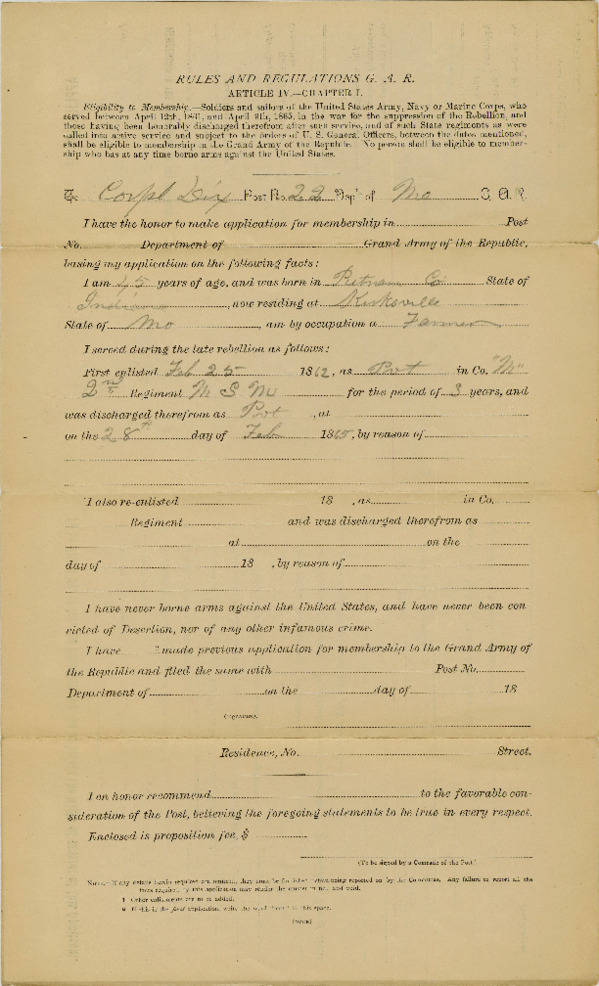 RULES AND REGULATIONS G. A. R.
ARTICLE IV.—CHAPTER I.
Eligibility to Membership.—Soldiers and sailors of the United States Army, Navy or Marine Corps, who
served between April 12th, 1861, and April 9th, 1865, in the war for the suppression of the Rebellion, and
those having been honorably discharged therefrom after such service, and of such State regiments as were
called into active service and subject to the orders of U. S. General Officers, between the dates mentioned,
shall be eligible to membership in the Grand Army of the Republic. No person shall be eligible to member-
ship who has at any time borne arms against the United States.
To Corpl Dix Post No. 22 Dep't of Mo G. A. R.
I have the honor to make application for membership in Post
No. Department of Grand Army of the Republic,
basing my application on the following facts:
I am 45 years of age, and was born in Putnam Co State of
Indiana, now residing at Kirksville
State of Mo, am by occupation a Farmer
I served during the late rebellion as follows:
First enlisted Feb 25 1862, as Pvt in Co. "M"
2nd Regiment M S M for the period of 3 years, and
was discharged therefrom as Pvt, at
on the 28th day of Feb 1865, by reason of
I also re-enlisted 18 , as in Co.
Regiment and was discharged therefrom as
at on the
day of 18 , by reason of
I have never borne arms against the United States, and have never been con
victed of Desertion, nor of any other infamous crime.
I have made previous application for membership to the Grand Army of
the Republic and filed the same with Post No.
Department of on the day of 18
Signature.
Residence, No. Street.
I on honor recommend to the favorable con-
sideration of the Post, believing the foregoing statements to be true in every respect.
Enclosed is proposition fee, $
(To be signed by a Comrade of the Post)
NOTE.—If any details herein required are omitted, they must be furnished when being reported on by the Committee. Any failure to report all the
facts required by this application may render the muster in null and void.
† Other enlistments are to be added.
* If this is the first application, write the word in this space.
[OVER]